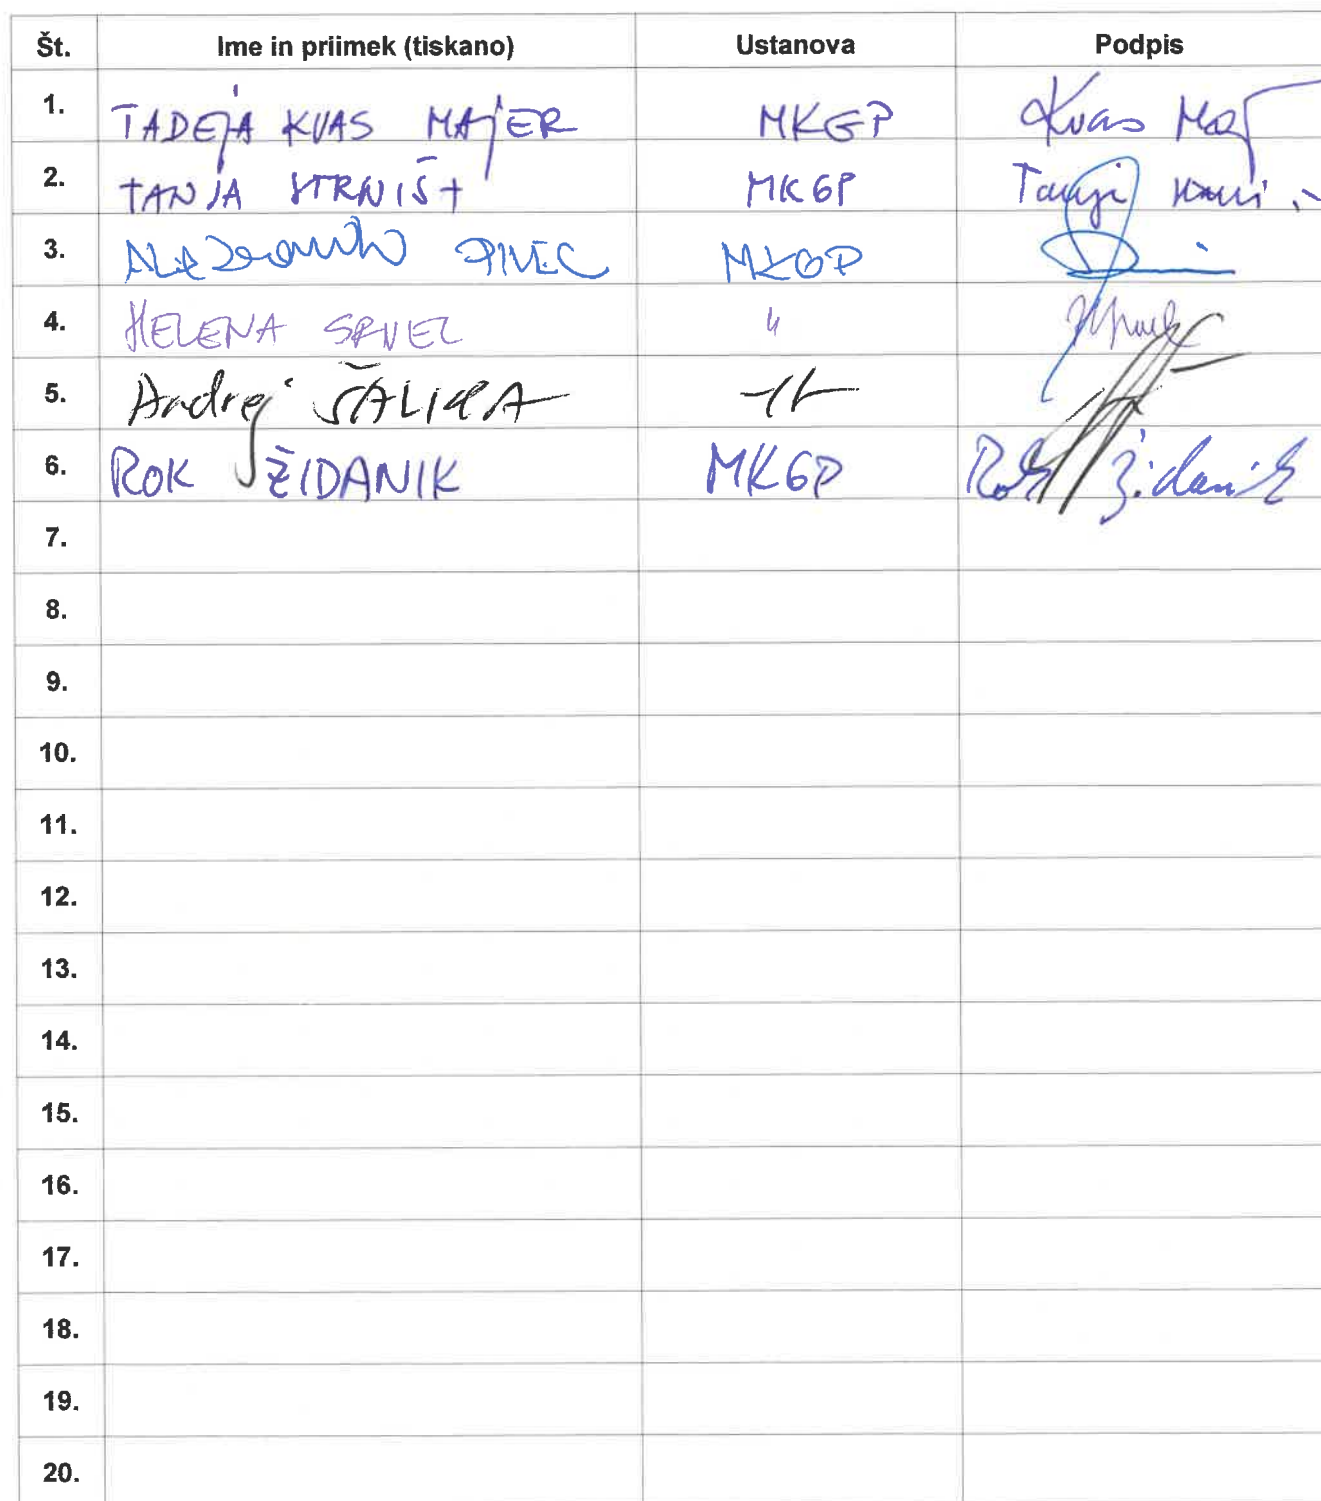 Št. Ime in priimek (tiskano) Ustanova Podpis
1. TADEJA KVAS MAJER MKGP Kvas Maj
2. TANJA STRNIŠ+ MKGP Tanja
3. PIVEC MKGP
4. HELENA SPNEC "
5. Andrej -//-
6. ROK ŽIDANIK MKGP Rok Židanik
7.
8.
9.
10.
11.
12.
13.
14.
15.
16.
17.
18.
19.
20.